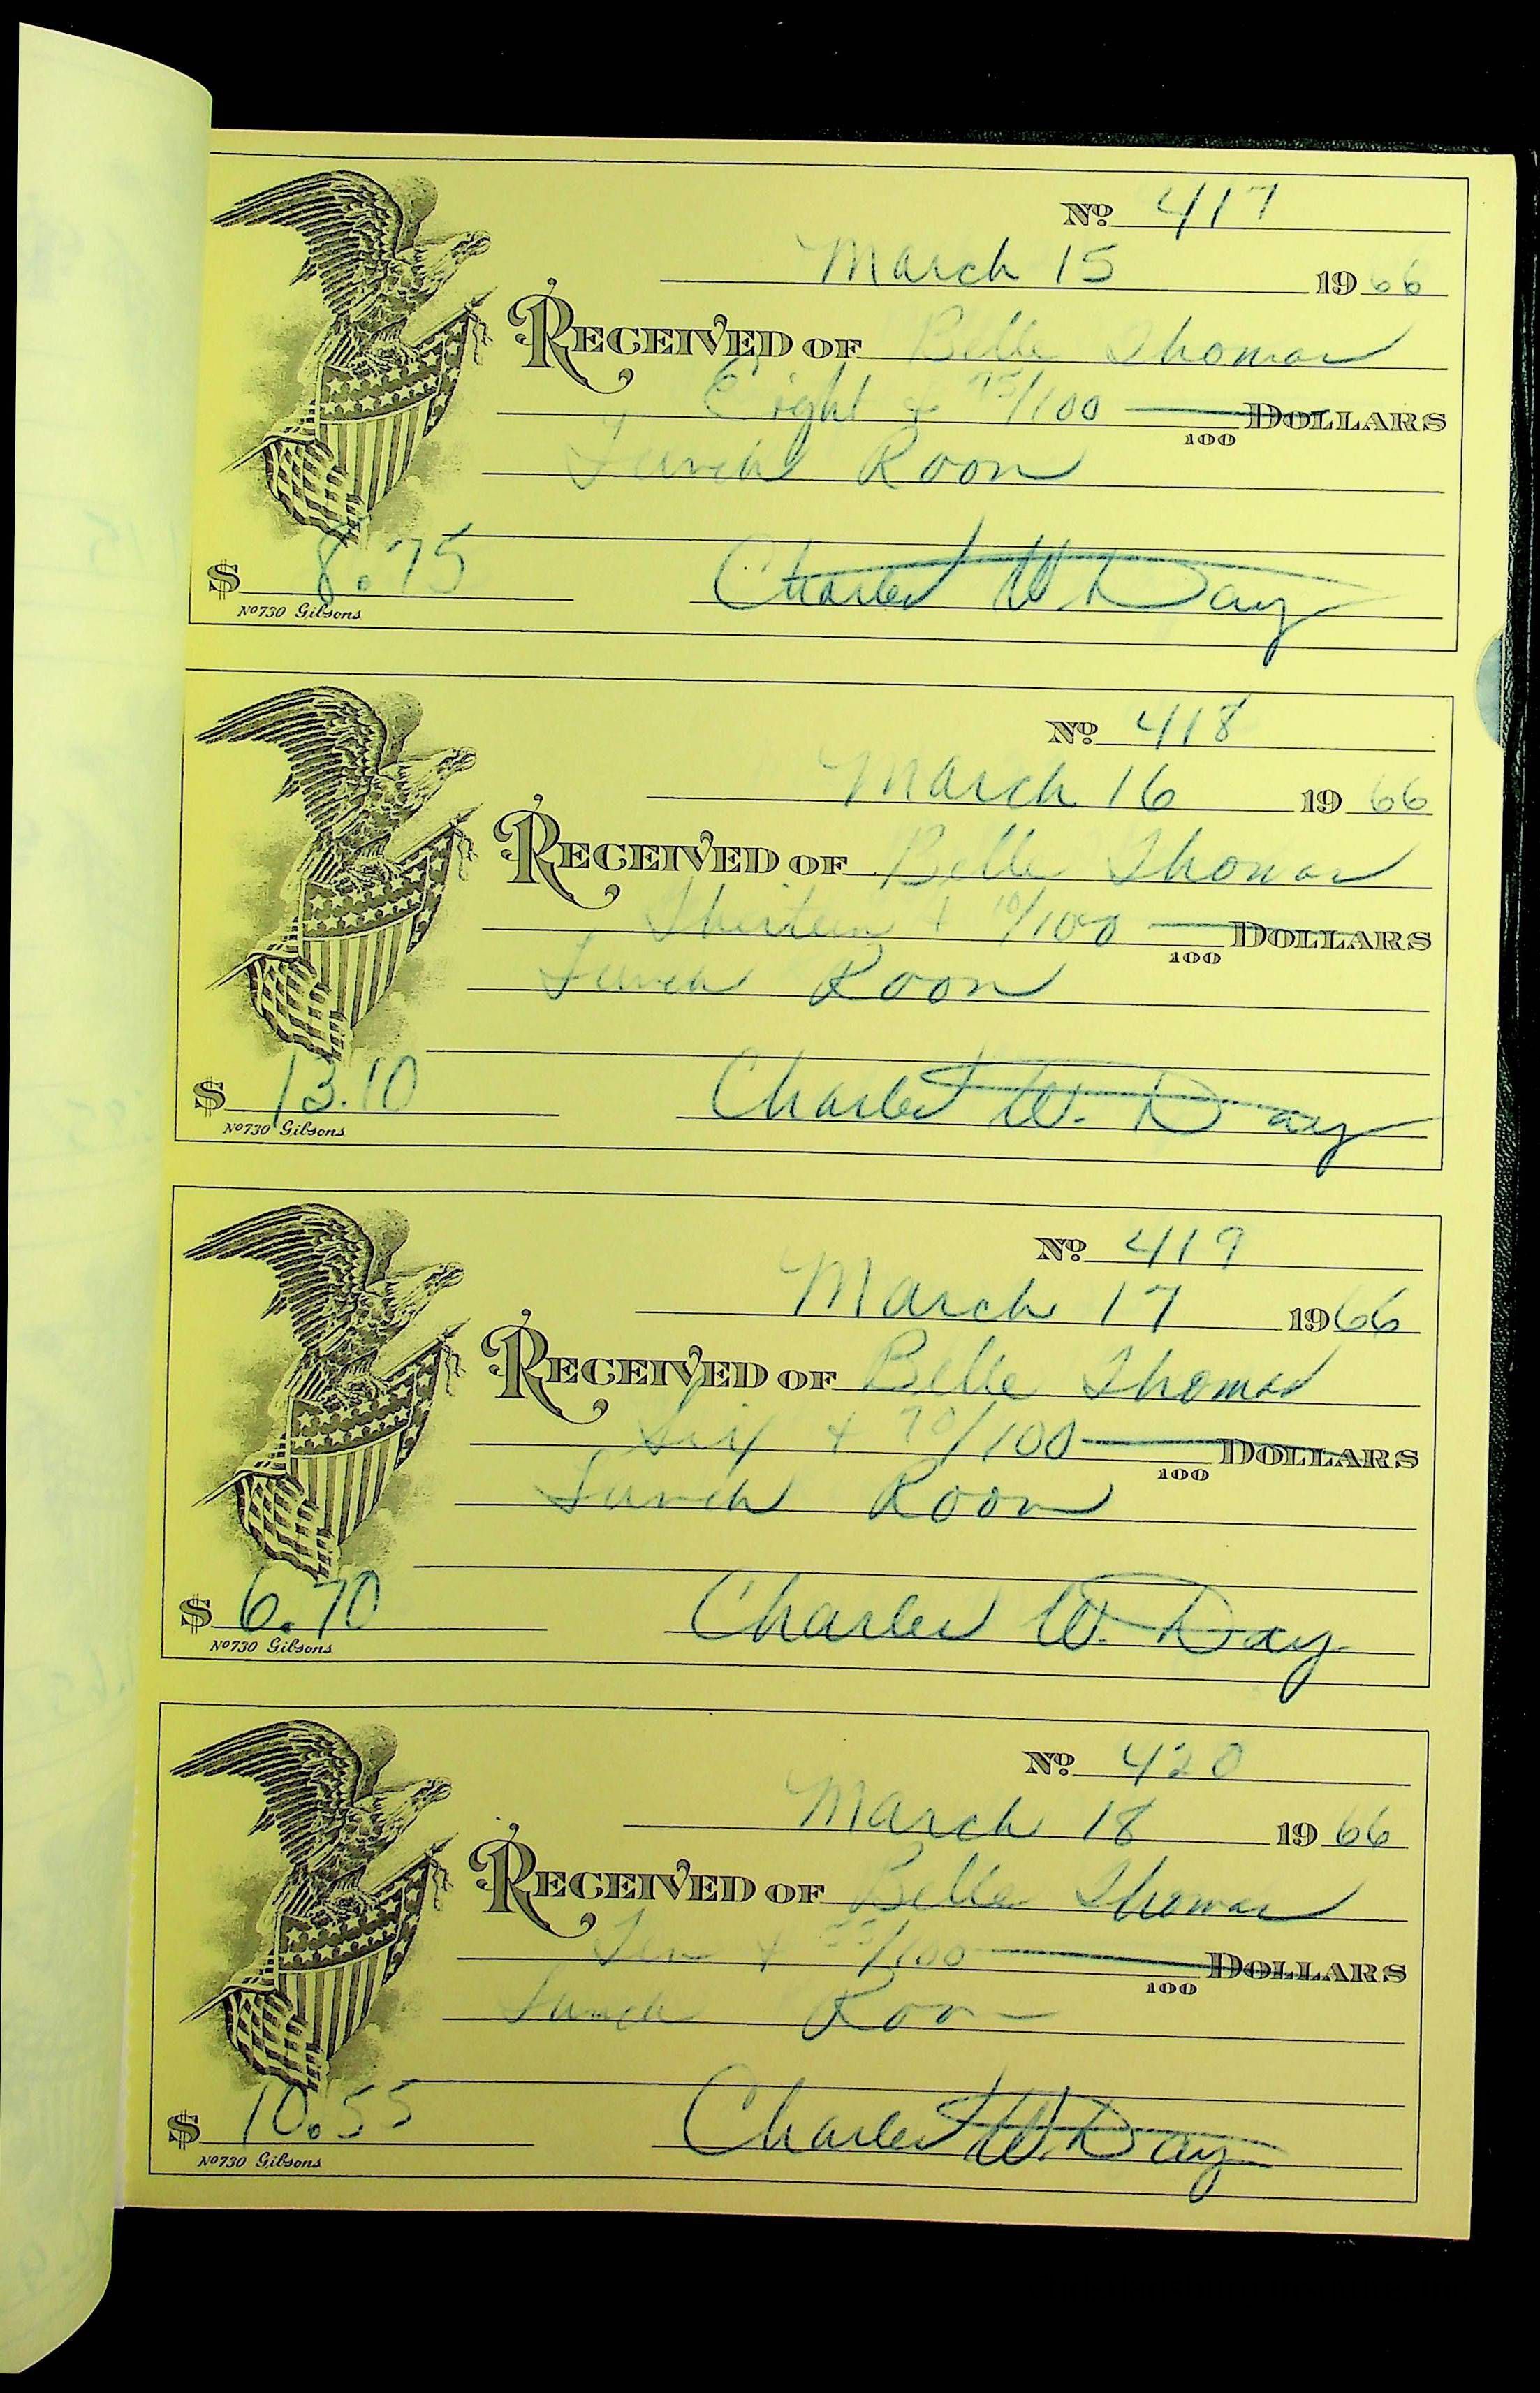 No. 417
March 15 1966
RECEIVED OF Belle Thomas
Eight & 75/100 DOLLARS
100
Lunch Room
$ 8.75 Charles W. Day
No 730 Gibsons
No. 418
March 16 1966
RECEIVED OF Belle Thomas
Thirteen & 10/100 DOLLARS
100
Lunch Room
$ 13.10 Charles W. Day
No 730 Gibsons
No. 419
March 17 1966
RECEIVED OF Belle Thomas
Six & 70/100 DOLLARS
100
Lunch Room
$ 6.70 Charles W. Day
No 730 Gibsons
No. 420
March 18 1966
RECEIVED OF Belle Thomas
Ten & 55/100 DOLLARS
100
Lunch Room
$ 10.55 Charles W. Day
No 730 Gibsons